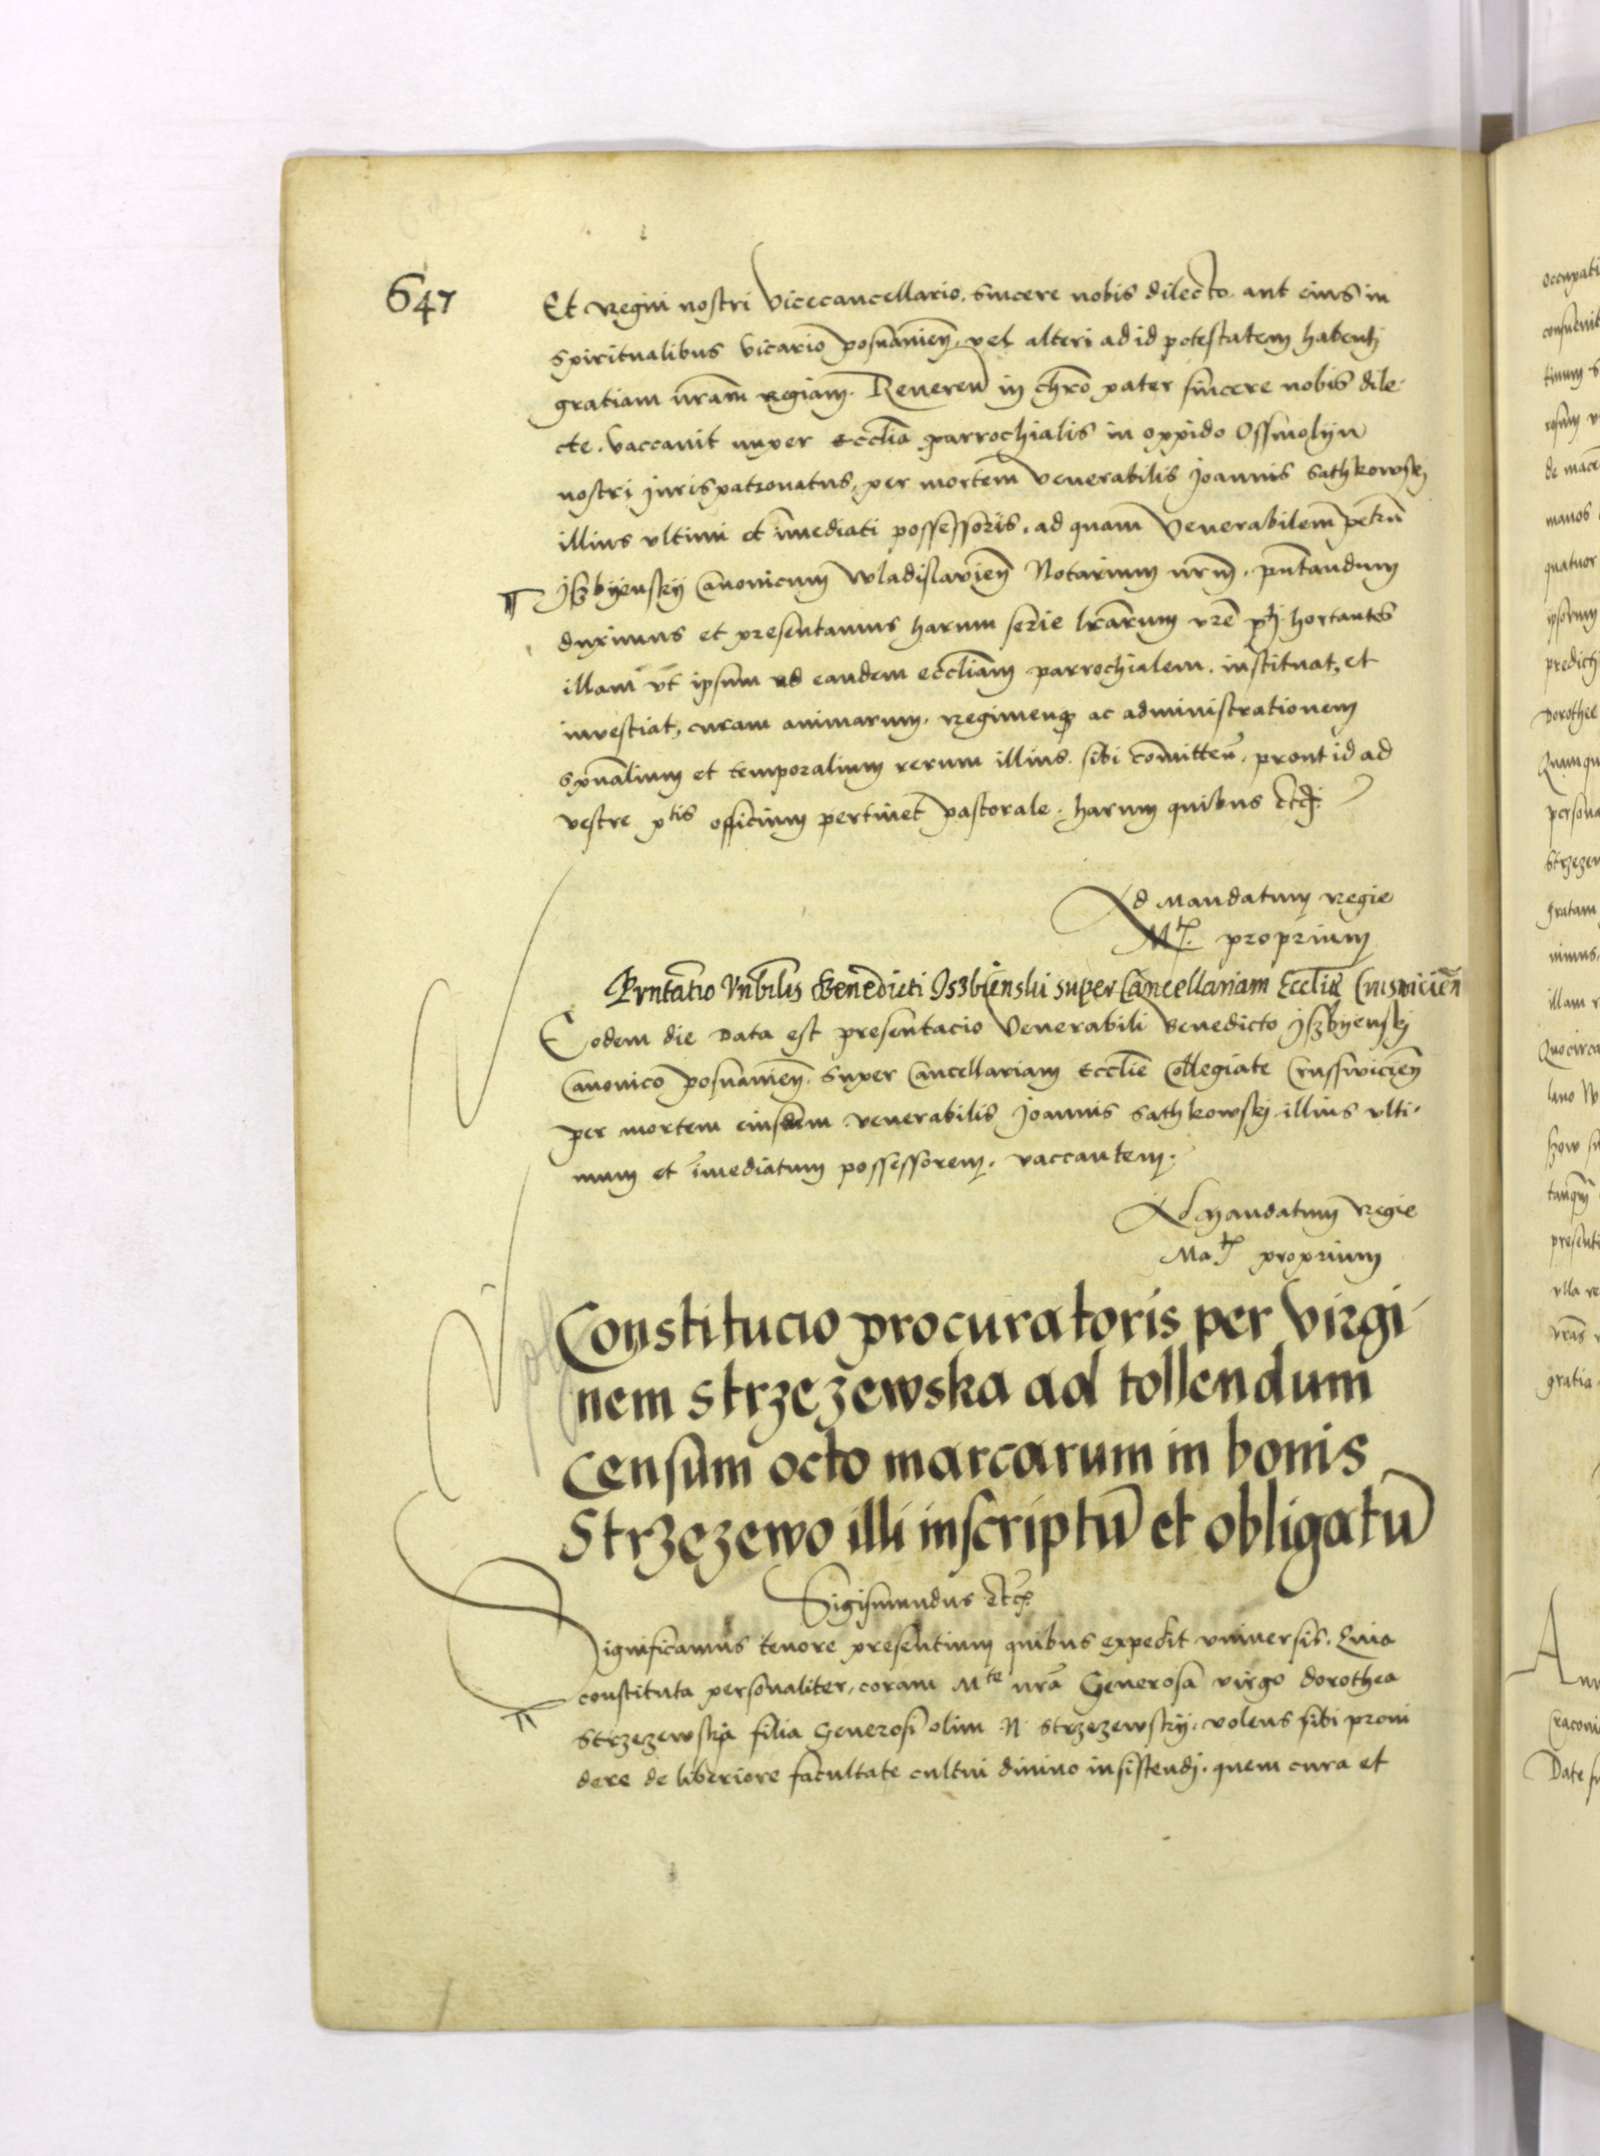 647
Et Regni nostri Vicecancellario, sincere nobis dilecto. aut eius in
spiritualibus vicario posnanien̄, vel alteri ad id potestatem habentj
gratiam nr̄am regiam. Reueren̄ in chr̄o pater sincere nobis dile-
cte. Vaccauit nuper Eccl̄ia parrochialis in oppido Ossmolijn
nostri jurispatronatus, per mortem venerabilis Joannis Sathkowskj
illius vltimi et īmediati possessoris, ad quam Venerabilem petrū
Jszbijenskij Canonicum wladislauien̄ Notarium nr̄m, pn̄tandum
duximus et presentamus harum serie lr̄arum vr̄e ptj hortantes
illam vt̄ ipsum ad eandem eccl̄iam parrochialem. instituat, et
inuestiat, curam animarum, Regimenq; ac administrationem
spūalium et temporalium rerum illius. sibi com̄itten̄, prout id ad
vestre ptis officium pertinet pastorale. harum quibus etc̄.
Ad Mandatum Regie
Mtj. proprium
Prn̄tatio Vn̄bilis Benedicti Iszbienski super Cancellariam Eccl̄ie Crusvicien̄
Eodem die Data est presentacio Venerabili Benedicto Jszbijenskj
Canonico posnanien̄. Super Cancellariam Eccl̄ie Collegiate Crusswicien̄
per mortem eiusdem venerabilis Joannis Sathkowskj illius vlti-
mum et īmediatum possessorem, vaccantem.
Ad Mandatum Regie
Matj proprium
Constitucio procuratoris per Virgi-
nem Strzezewska ad tollendum
Censum octo marcarum in bonis
Strzezewo illi inscriptū et obligatū
Sigismundus etc̄.
Significamus tenore presentium quibus expedit vniuersis. Quia
constituta personaliter, coram Mte nr̄a Generosa virgo Dorothea
Strzezewska filia Generosi olim N. Strzezewskij. volens sibi proui
dere de liberiore facultate cultui diuino insistendj. quem cura et